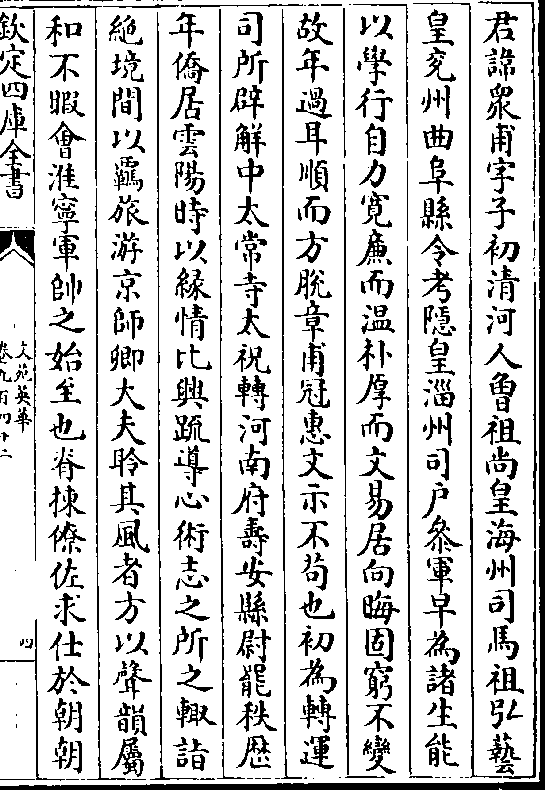 君諱衆甫字子初清河人曽祖尚皇海州司馬祖弘藝
皇兖州曲阜縣令考隱皇淄州司户叅軍早為諸生能
以學行自力寛廉而温朴厚而文易居向晦固窮不變
故年過耳順而方脫章甫冠惠文示不茍也初為轉運
司所辟解中太常寺太祝轉河南府壽安縣尉罷秩歴
年僑居雲陽時以縁情比興疏導心術志之所之輙詣
絶境間以羈旅游京師卿大夫聆其風者方以聲韻屬
和不暇會淮寧軍帥之始至也脊楝僚佐求仕於朝朝
欽定四庫全書
文苑英華
卷九百四十二
四